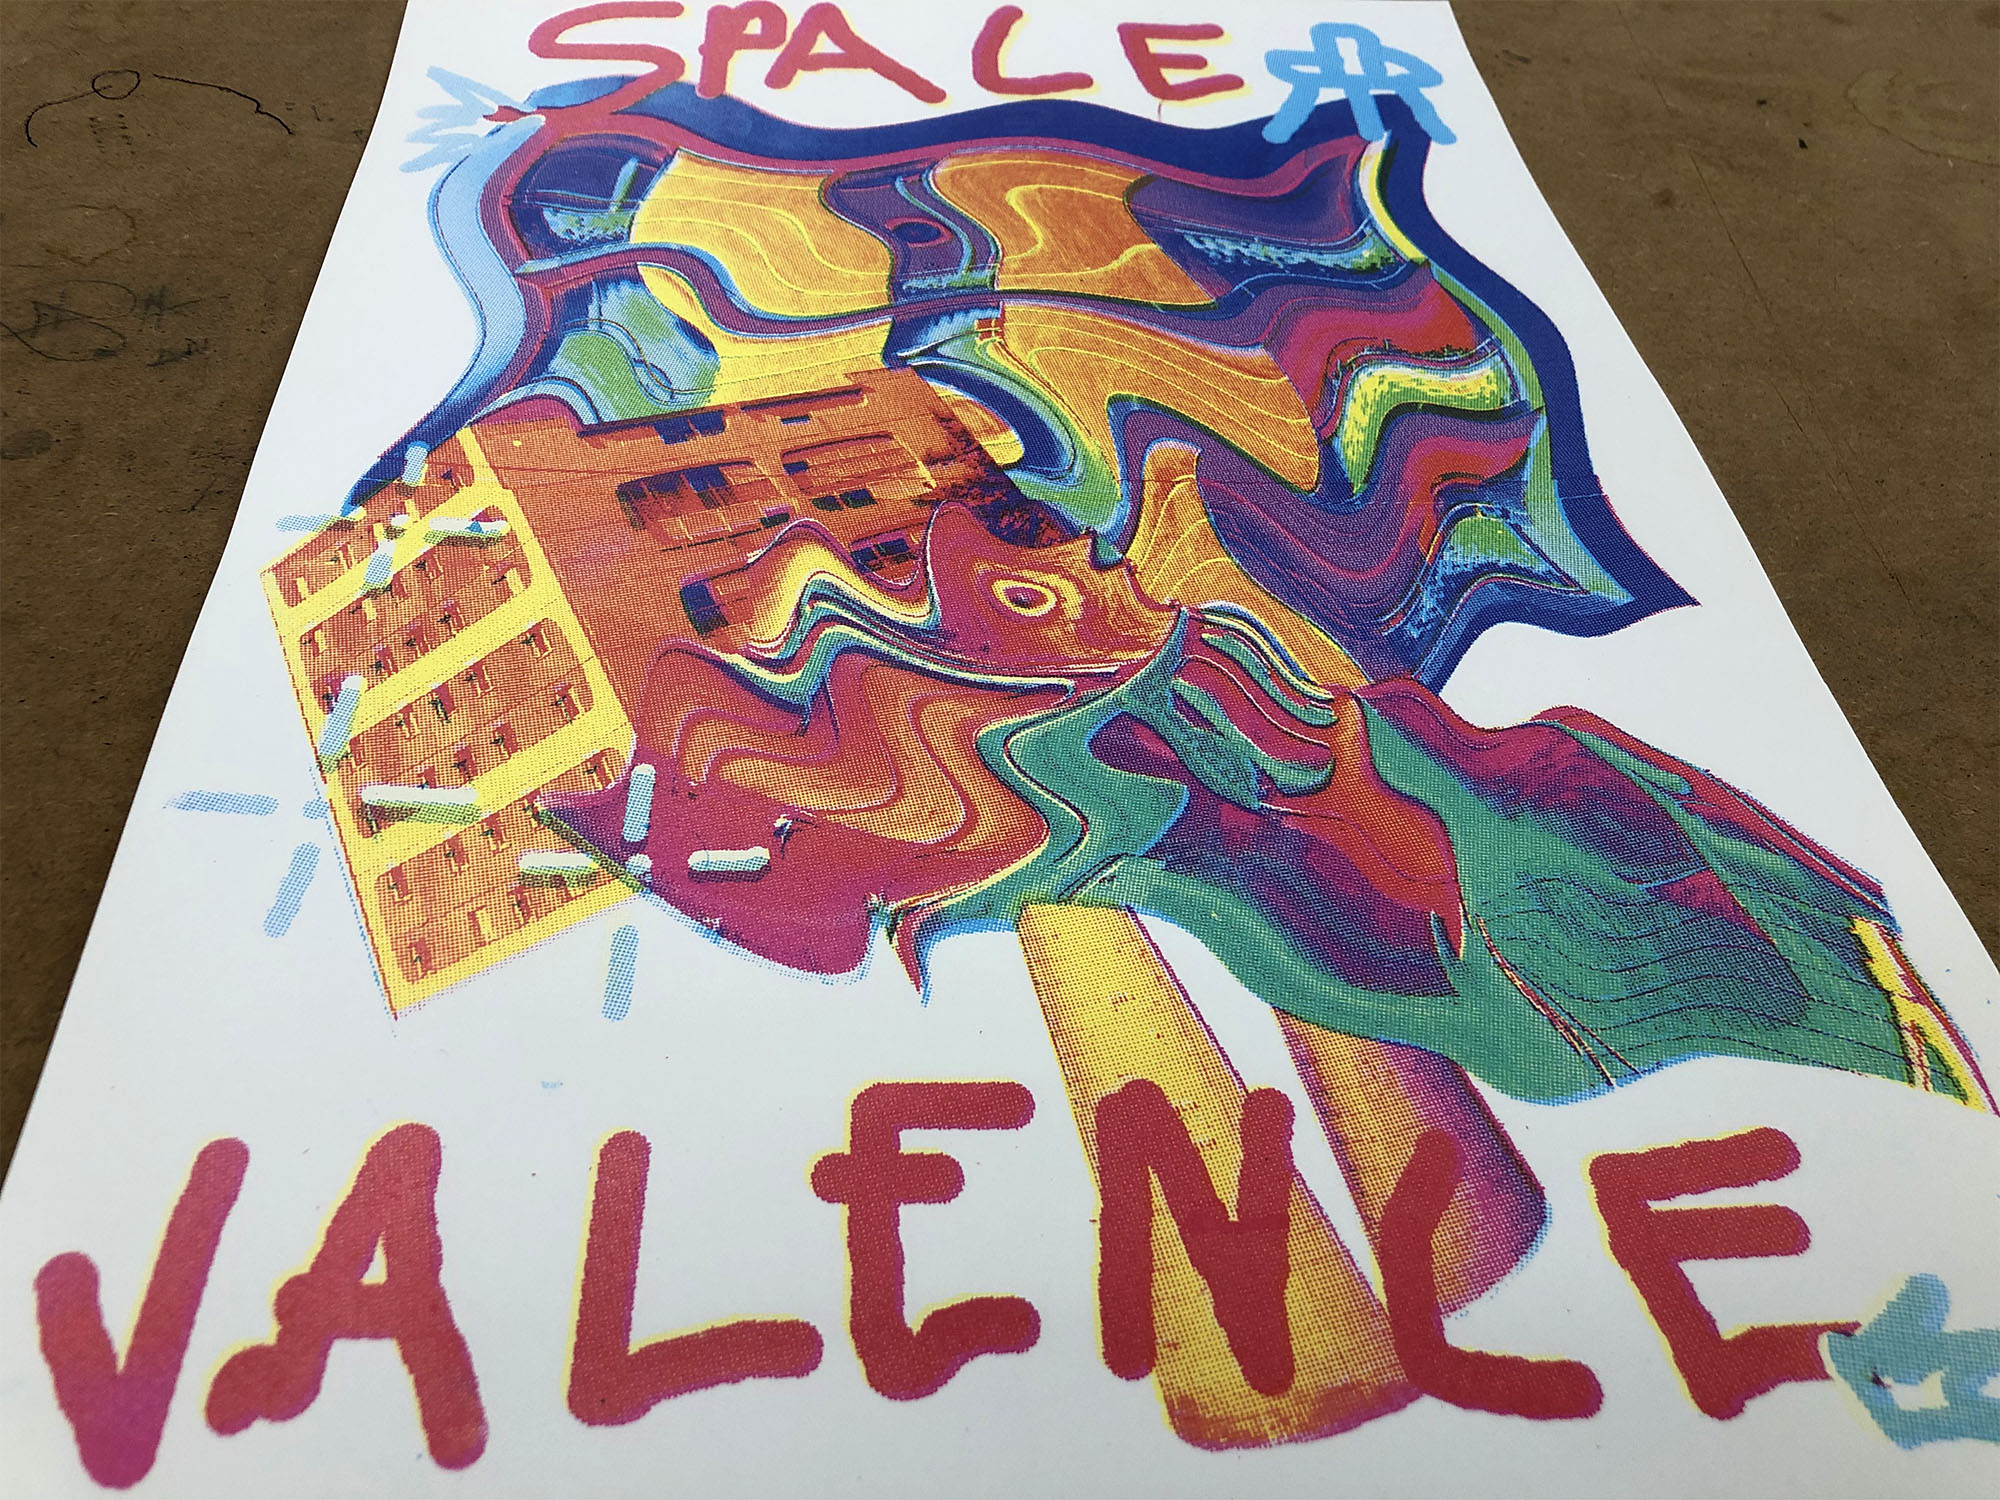 SPACE
VALENCE